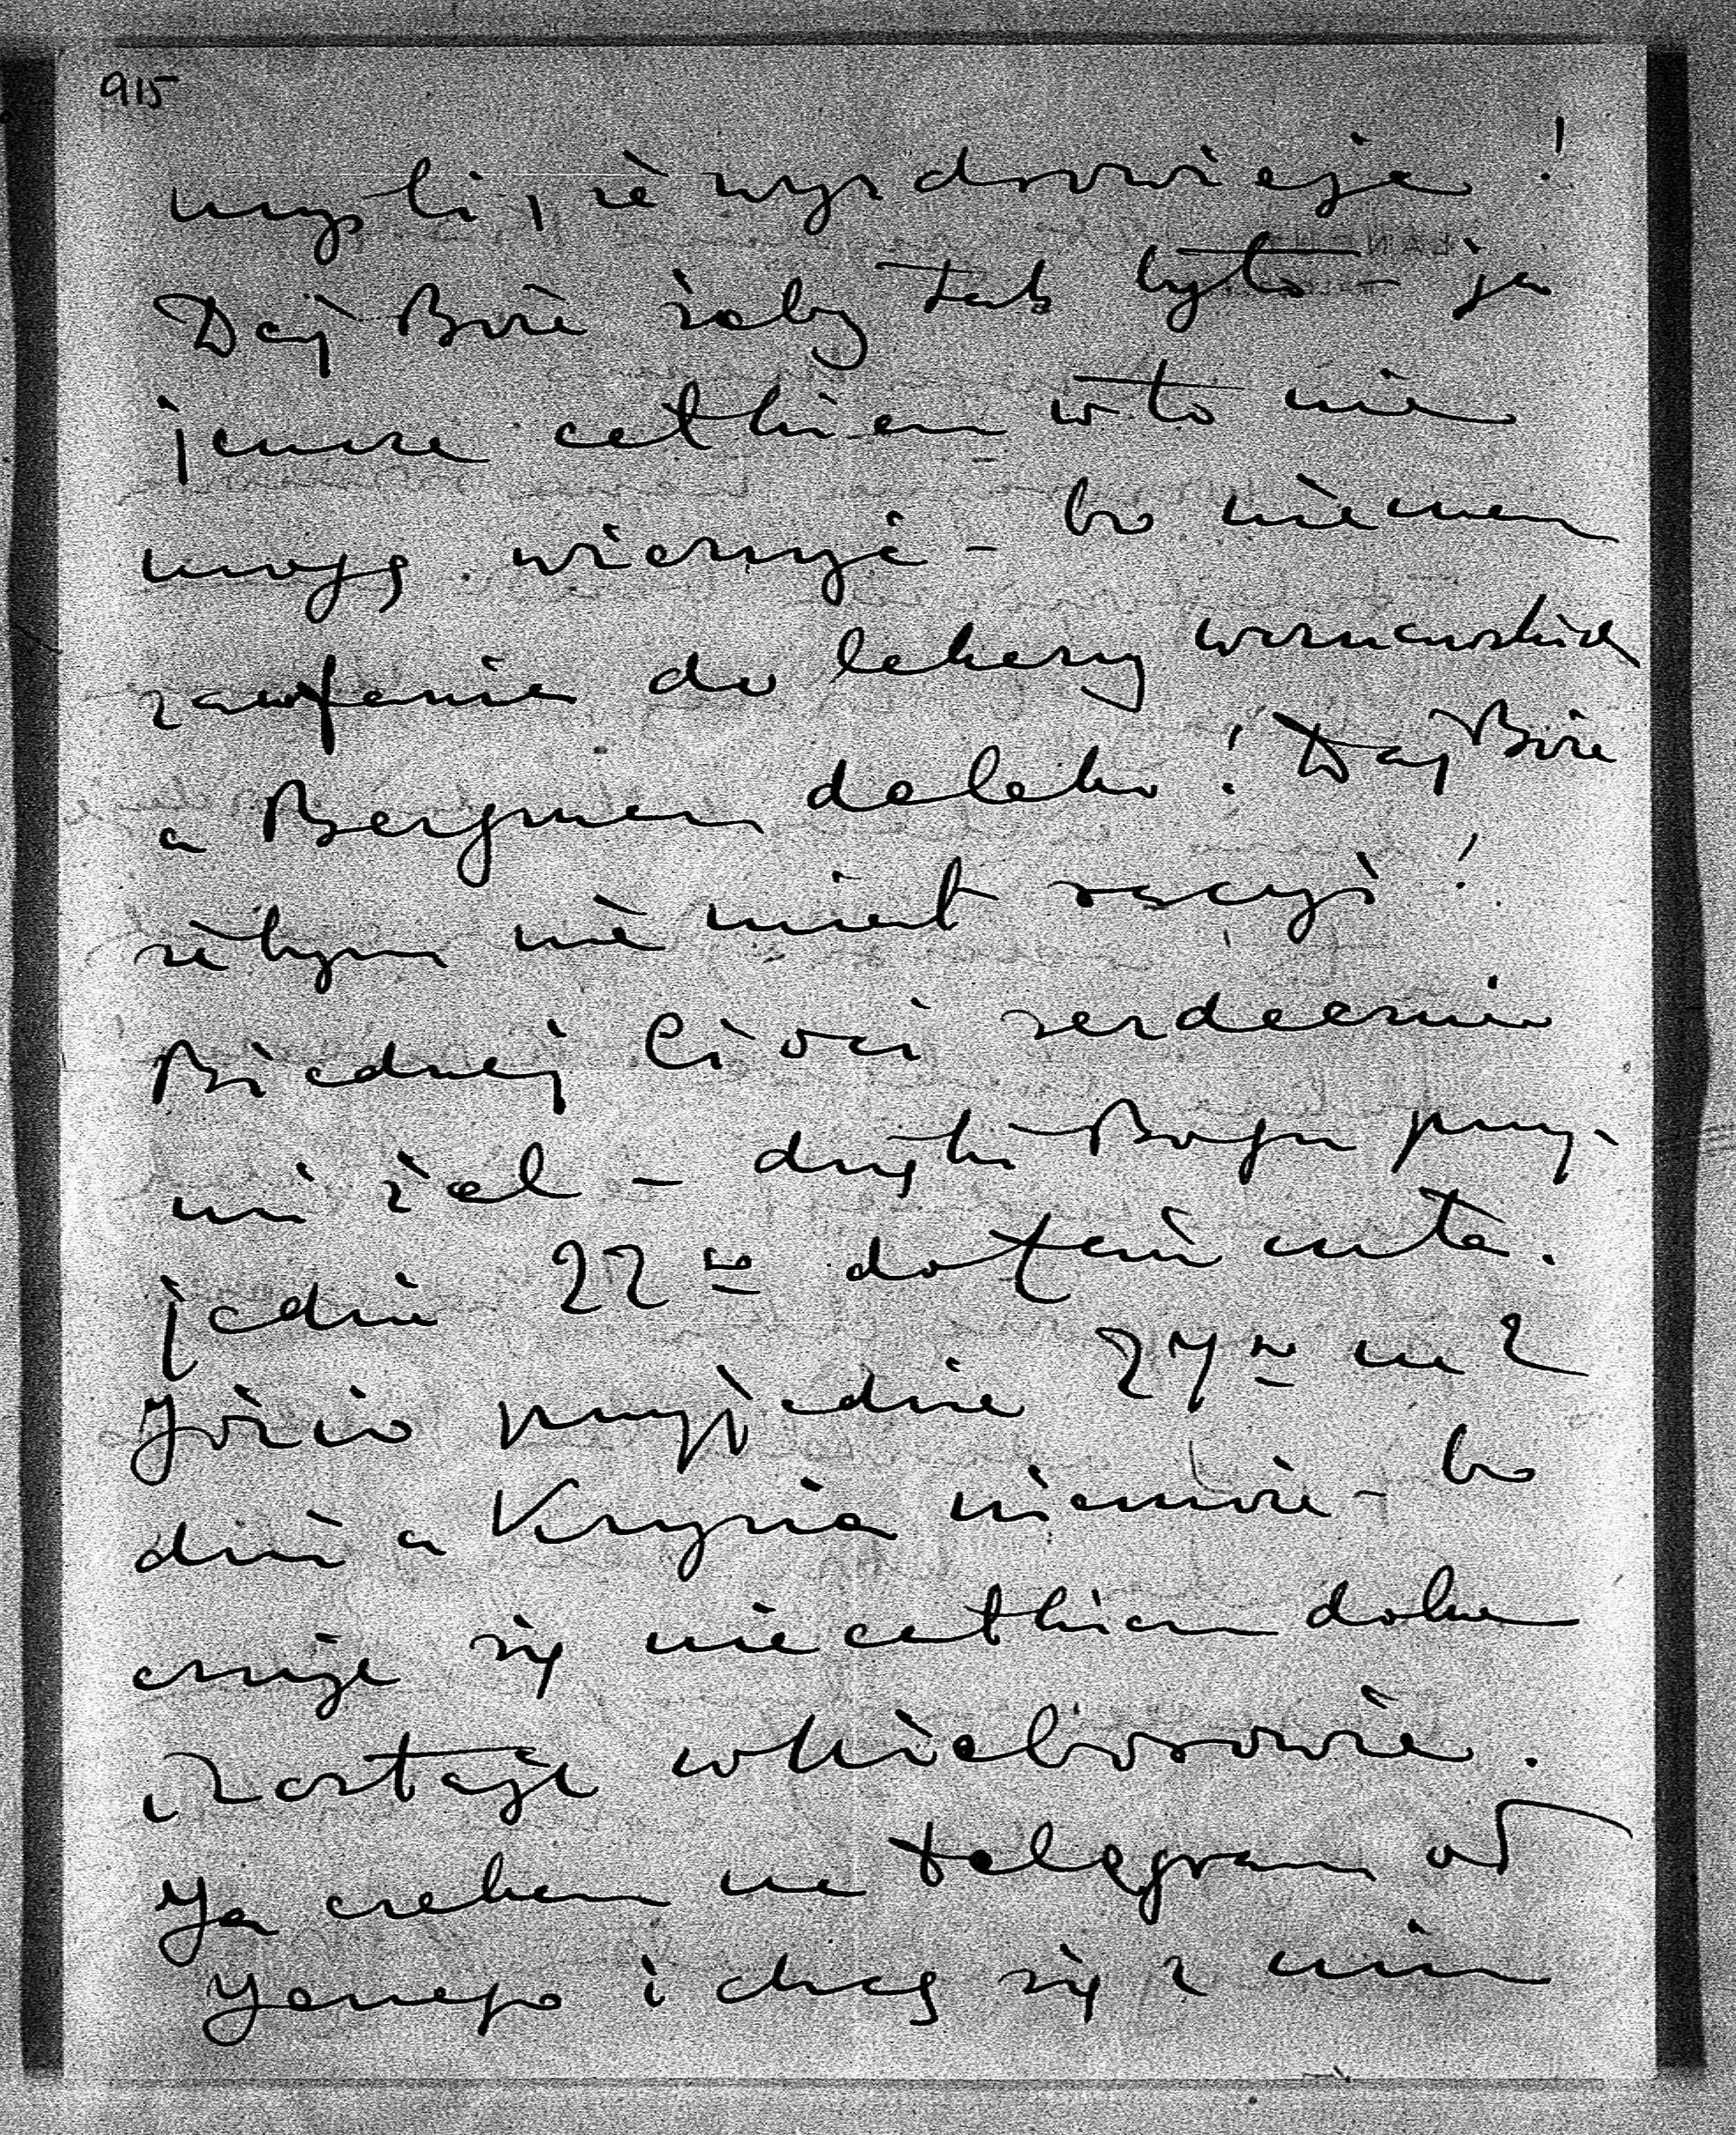 915
myśli, że wyzdrowieje!
Daj Boże żeby tak było – ja
jeszcze całkiem w to nie
mogę wierzyć – bo nie mam
zaufania do lekarzy warszawskich
a Bergman daleko! Daj Boże
żebym nie miał racyi!
Biednej Cioci serdecznie
mi żal – dzięki Bogu przy-
jedzie 22go do Łańcuta.
Józio przyjedzie 24go na 2
dni a Krzysia nie może – bo
czuje się nie całkiem dobrze
i zostaje w Kiełbasowie.
Ja czekam na telegram od
Janego i chcę się z nim